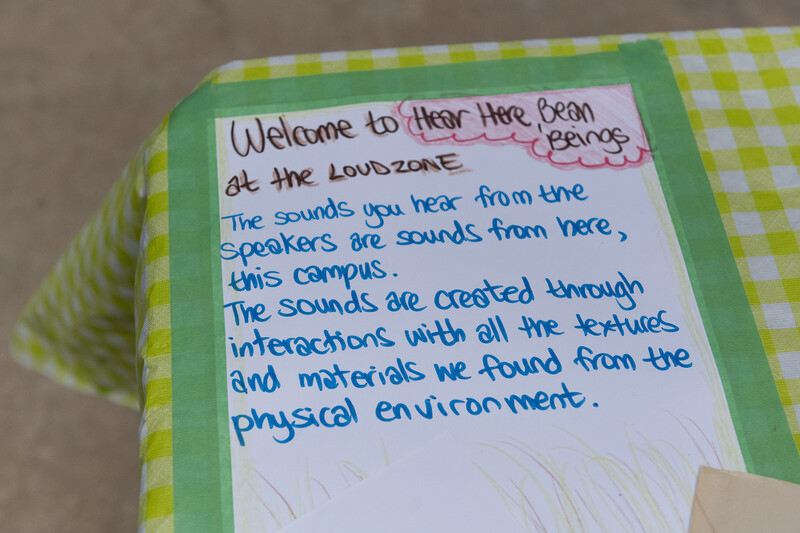 Welcome to Hear Here, Bean Beings
at the LOUDZONE
The sounds you hear from the
speakers are sounds from here,
this campus.
The sounds are created through
interactions with all the textures
and materials we found from the
physical environment.